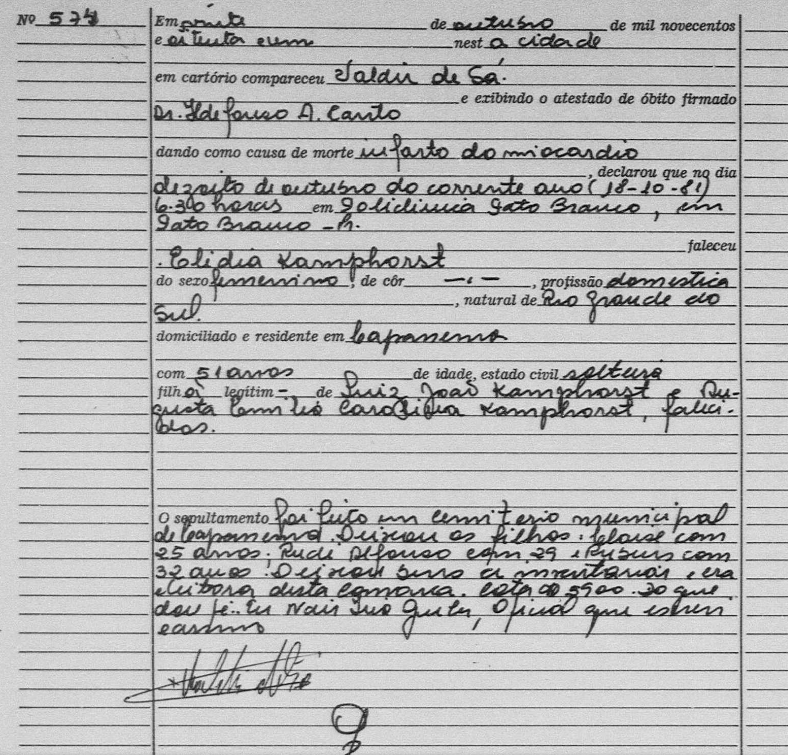 Nº 574
Em vinte de outubro de mil novecentos
e oitenta e um nest a cidade
em cartório compareceu Valdir de Sá.
e exibindo o atestado de óbito firmado
Dr. Ildefonso A. Canto
dando como causa de morte infarto do miocardio
, declarou que no dia
dezoito de outubro do corrente ano (18-10-81)
6.30 horas em Policlinica Pato Branco, em
Pato Branco - Pr.
faleceu
. Elidia Kamphorst
do sexo femenino, de côr -.- , profissão domestica
, natural de Rio Grande do
Sul.
domiciliado e residente em Capanema
com 51 anos de idade, estado civil solteira
filha legítim - de Luiz João Kamphorst e Au-
gusta Carolina Kamphorst, faleci-
dos.
O sepultamento foi feito em cemiterio municipal
de Capanema. Deixou os filhos: com
25 anos; Rudi com 29 e Rubens com
32 anos. Deixou bens a inventariar, era
eleitora desta Comarca. do que
dou fé. Eu, Oficial que escrevi
e assino